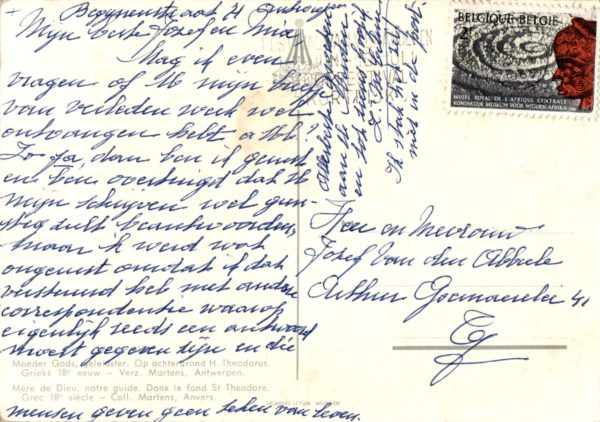 + Begynenstraat 21 Antwerpen
Mijn beste Jozef en Ima
Mag ik even
vragen of U mijn brief
van verleden week wel
ontvangen hebt a.u.b.?
Zo ja, dan ben ik gerust
en ben overtuigd dat U
mijn schrijven wel gun-
stig zult beantwoorden,
maar ik werd wat
ongerust omdat ik dat
verstuurd heb met andere
correspondentie waarop
eigenlijk reeds een antwoord
moest gegeven zijn en die
mensen geven geen teken van leven.
Allerbeste groeten
aan de
en tot
Ik
niet in de post
BELGIQUE-BELGIË
2F
MUSÉE ROYAL DE L'AFRIQUE CENTRALE
KONINKLIJK MUSEUM VOOR MIDDEN-AFRIKA
Heer en Mevrouw
Jozef Van den Abbeele
Arthur Goemaerelei 41
Moeder Gods, geleidster. Op achtergrond H. Theodorus.
Grieks 18e eeuw – Verz. Martens, Antwerpen.
Mère de Dieu, notre guide. Dans le fond St Theodore.
Grec 18e siècle – Coll. Martens, Anvers.